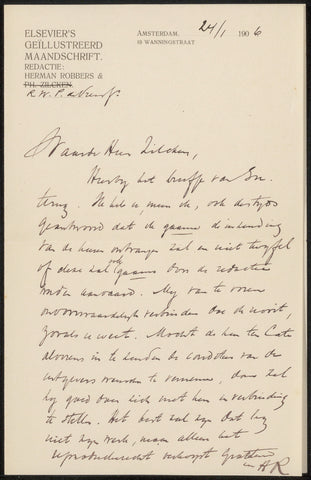 ELSEVIER'S
GEÏLLUSTREERD
MAANDSCHRIFT.
REDACTIE:
HERMAN ROBBERS &
PH. ZILCKEN.
R. W. P. de Vries Jr.
AMSTERDAM, 24/1 1906
13 WANNINGSTRAAT
Waarde Heer Zilcken,
Hierbij het briefje van
terug. Ik heb u, meen ik, ook destijds
geantwoord dat ik gaarne de inzending
van de heeren ontvangen zal en niet twijfel
of deze zal ook gaarne door de redactie
worden aanvaard. Mij van te voren
onvoorwaardelijk verbinden doe ik nooit,
zooals u weet. Mocht de heer ten Cate
alvorens in te zenden de condities van de
uitgevers wenschen te vernemen, dan zal
hij goed doen zich met hen in verbinding
te stellen. Het best zal zijn dat hij
niet zijn werk, maar alleen het
reproductierecht verkoopt
HR